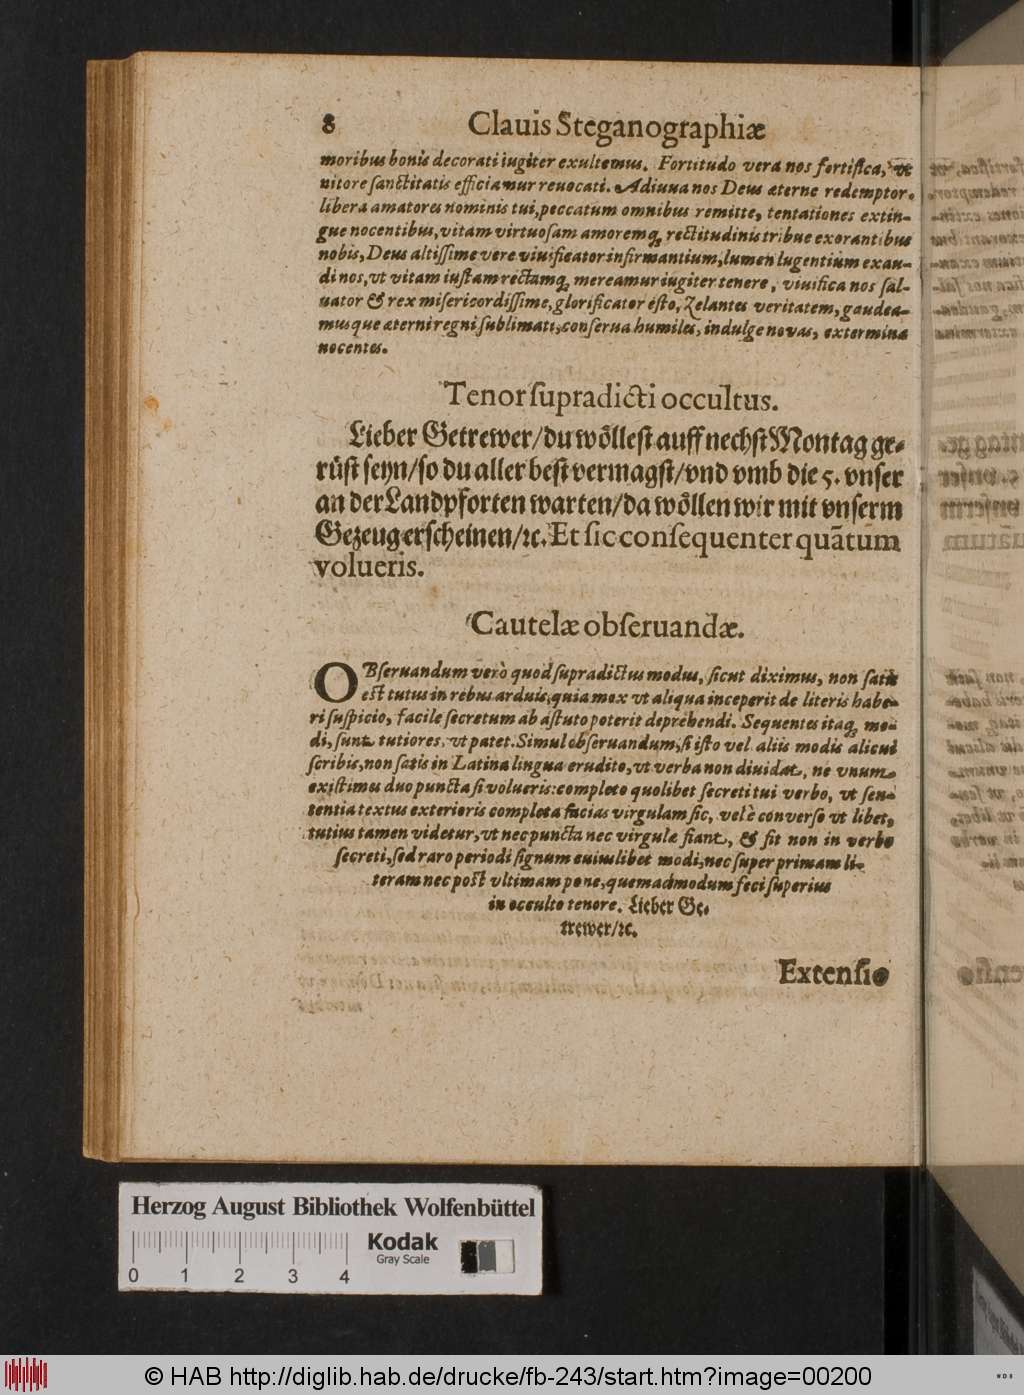 8 Clauis Steganographiæ
moribus bonis decorati iugiter exultemus. Fortitudo vera nos fortifica, vt
nitore sanctitatis efficiamur reuocati. Adiuua nos Deus æterne redemptor,
libera amatores nominis tui, peccatum omnibus remitte, tentationes extin-
gue nocentibus, vitam virtuosam amoremq; rectitudinis tribue exorantibus
nobis, Deus altissime vere viuificator infirmantium, lumen lugentium exau-
di nos, vt vitam iustam rectamq; mereamur iugiter tenere, viuifica nos sal-
uator & rex misericordissime, glorificator esto, Zelantes veritatem, gaudea-
musque æterni regni sublimati, conserua humiles, indulge nouas, extermina
nocentes.
Tenor supradicti occultus.
Lieber Getrewer/ du wöllest auff nechst Montag ge-
rüst seyn/ so du aller best vermagst/ vnd vmb die 5. vnser
an der Landpforten warten/ da wöllen wir mit vnserm
Gezeug erscheinen/ ꝛc. Et sic consequenter quātum
volueris.
Cautelæ obseruandæ.
OBseruandum verò quod supradictus modus, sicut diximus, non satis
est tutus in rebus arduis, quia mox vt aliqua inceperit de literis habe-
ri suspicio, facile secretum ab astuto poterit deprehendi. Sequentes itaq; mo-
di, sunt tutiores, vt patet. Simul obseruandum, si isto vel aliis modis alicui
scribis, non satis in Latina lingua erudito, vt verba non diuidat, ne vnum
existimes duo puncta si volueris: completo quolibet secreti tui verbo, vt sen-
tentia textus exterioris completa facias virgulam sic, vel è conuerso vt libet,
tutius tamen videtur, vt nec puncta nec virgulæ fiant, & sit non in verbo
secreti, sed raro periodi signum cuiuslibet modi, nec super primam li-
teram nec post vltimam pone, quemadmodum feci superius
in occulto tenore. Lieber Ge-
trewer/ ꝛc.
Extensio
Herzog August Bibliothek Wolfenbüttel
Kodak
Gray Scale
0 1 2 3 4
© HAB http://diglib.hab.de/drucke/fb-243/start.htm?image=00200